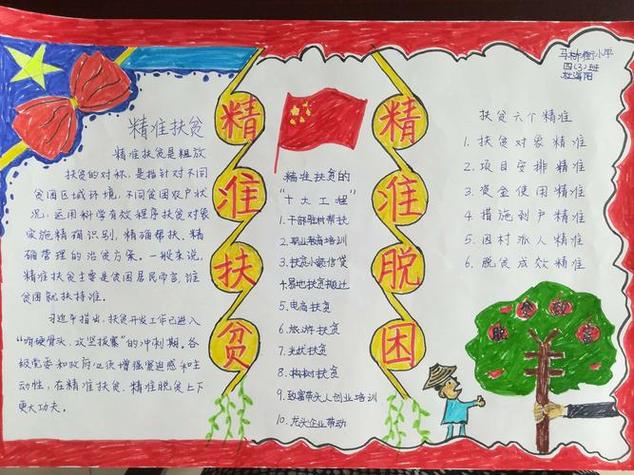 精准扶贫
精准扶贫是粗放
扶贫的对称，是指针对不同
贫困区域环境、不同贫困农户状
况，运用科学有效程序扶贫对象
实施精确识别、精确帮扶、精
确管理的治贫方案。一般来说，
精准扶贫主要是贫困居民而言，谁
贫困就扶持谁。
习近平指出，扶贫开发工作已进入
“啃硬骨头、攻坚拔寨”的冲刺期。各
级党委和政府必须增强紧迫感和主
动性，在精准扶贫、精准脱贫上下
更大功夫。
精准扶贫
精准扶贫的
“十大工程”
1.干部驻村帮扶
2.职业教育培训
3.扶贫小额信贷
4.易地扶贫搬迁
5.电商扶贫
6.旅游扶贫
7.光伏扶贫
8.构树扶贫
9.致富带头人创业培训
10.龙头企业带动
精准脱困
小学
四(3)班
扶贫六个精准
1.扶贫对象精准
2.项目安排精准
3.资金使用精准
4.措施到户精准
5.因村派人精准
6.脱贫成效精准